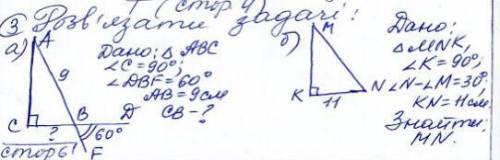 (стор 4)
③ Розв'язати задачі:
а) A
Дано: △ ABC
∠C=90°;
∠DBF=60°
AB=9см
CB-?
9
C ? B D
60°
F
стор 6!
б) M
K 11 N
Дано:
△MNK,
∠K=90°;
∠N-∠M=30°;
KN=11см
Знайти:
MN.